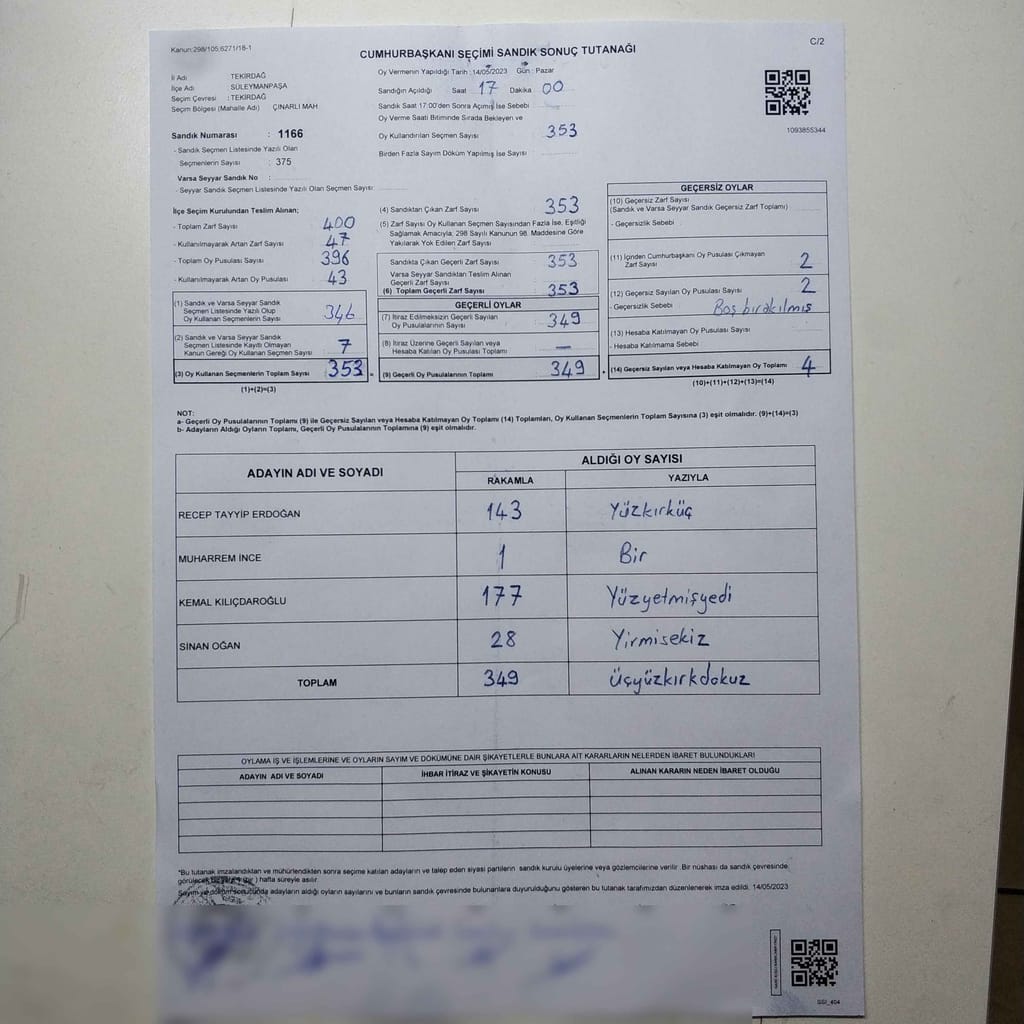 Kanun:298/105;6271/18-1
C/2
CUMHURBAŞKANI SEÇİMİ SANDIK SONUÇ TUTANAĞI
İl Adı TEKİRDAĞ
İlçe Adı SÜLEYMANPAŞA
Seçim Çevresi : TEKİRDAĞ
Seçim Bölgesi (Mahalle Adı) ÇINARLI MAH
Sandık Numarası : 1166
- Sandık Seçmen Listesinde Yazılı Olan
Seçmenlerin Sayısı : 375
Varsa Seyyar Sandık No :
- Seyyar Sandık Seçmen Listesinde Yazılı Olan Seçmen Sayısı:
Oy Vermenin Yapıldığı Tarih : 14/05/2023 Gün : Pazar
Sandığın Açıldığı Saat 17 Dakika 00
Sandık Saat 17:00'den Sonra Açımış İse Sebebi
Oy Verme Saati Bitiminde Sırada Bekleyen ve
Oy Kullandırılan Seçmen Sayısı 353
Birden Fazla Sayım Döküm Yapılmış İse Sayısı
1093855344
İlçe Seçim Kurulundan Teslim Alınan;
- Toplam Zarf Sayısı 400
- Kullanılmayarak Artan Zarf Sayısı 47
- Toplam Oy Pusulası Sayısı 396
- Kullanılmayarak Artan Oy Pusulası 43
(1) Sandık ve Varsa Seyyar Sandık
Seçmen Listesinde Yazılı Olup
Oy Kullanan Seçmenlerin Sayısı 346
(2) Sandık ve Varsa Seyyar Sandık
Seçmen Listesinde Kayıtlı Olmayan
Kanun Gereği Oy Kullanan Seçmen Sayısı 7
(3) Oy Kullanan Seçmenlerin Toplam Sayısı 353 =
(1)+(2)=(3)
(4) Sandıktan Çıkan Zarf Sayısı 353
(5) Zarf Sayısı Oy Kullanan Seçmen Sayısından Fazla İse, Eşitliği
Sağlamak Amacıyla; 298 Sayılı Kanunun 98. Maddesine Göre
Yakılarak Yok Edilen Zarf Sayısı
Sandıkta Çıkan Geçerli Zarf Sayısı 353
Varsa Seyyar Sandıktan Teslim Alınan
Geçerli Zarf Sayısı
(6) Toplam Geçerli Zarf Sayısı 353
GEÇERLİ OYLAR
(7) İtiraz Edilmeksizin Geçerli Sayılan
Oy Pusulalarının Sayısı 349
(8) İtiraz Üzerine Geçerli Sayılan veya
Hesaba Katılan Oy Pusulası Toplamı —
(9) Geçerli Oy Pusulalarının Toplamı 349 +
GEÇERSİZ OYLAR
(10) Geçersiz Zarf Sayısı
(Sandık ve Varsa Seyyar Sandık Geçersiz Zarf Toplamı)
- Geçersizlik Sebebi
(11) İçinden Cumhurbaşkanı Oy Pusulası Çıkmayan
Zarf Sayısı 2
(12) Geçersiz Sayılan Oy Pusulası Sayısı 2
- Geçersizlik Sebebi Boş bırakılmış
(13) Hesaba Katılmayan Oy Pusulası Sayısı
- Hesaba Katılmama Sebebi
(14) Geçersiz Sayılan veya Hesaba Katılmayan Oy Toplamı 4
(10)+(11)+(12)+(13)=(14)
NOT:
a- Geçerli Oy Pusulalarının Toplamı (9) ile Geçersiz Sayılan veya Hesaba Katılmayan Oy Toplamı (14) Toplamları, Oy Kullanan Seçmenlerin Toplam Sayısına (3) eşit olmalıdır. (9)+(14)=(3)
b- Adayların Aldığı Oyların Toplamı, Geçerli Oy Pusulalarının Toplamına (9) eşit olmalıdır.
ADAYIN ADI VE SOYADI ALDIĞI OY SAYISI
RAKAMLA YAZIYLA
RECEP TAYYİP ERDOĞAN 143 Yüzkırküç
MUHARREM İNCE 1 Bir
KEMAL KILIÇDAROĞLU 177 Yüzyetmişyedi
SİNAN OĞAN 28 Yirmisekiz
TOPLAM 349 Üçyüzkırkdokuz
OYLAMA İŞ VE İŞLEMLERİNE VE OYLARIN SAYIM VE DÖKÜMÜNE DAİR ŞİKAYETLERLE BUNLARA AİT KARARLARIN NELERDEN İBARET BULUNDUKLARI
ADAYIN ADI VE SOYADI İHBAR İTİRAZ VE ŞİKAYETİN KONUSU ALINAN KARARIN NEDEN İBARET OLDUĞU
*Bu tutanak imzalandıktan ve mühürlendikten sonra seçime katılan adayların ve talep eden siyasi partilerin sandık kurulu üyelerine veya gözlemcilerine verilir. Bir nüshası da sandık çevresinde
görülecek hafta süreyle asılır.
Sayım ve döküm sonucunda adayların aldığı oyların sayılarını ve bunların sandık çevresinde bulunanlara duyurulduğunu gösteren bu tutanak tarafımızdan düzenlenerek imza edildi. 14/05/2023
SSI_404